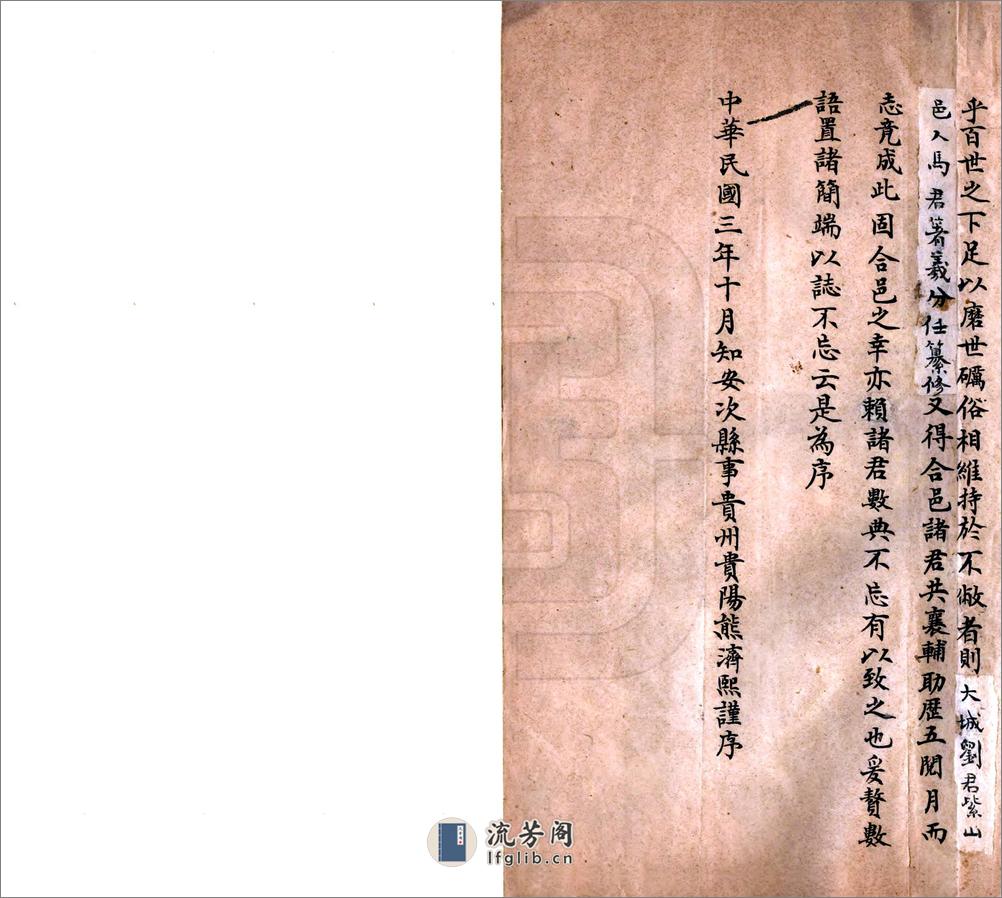 乎百世之下足以磨世礪俗相維持於不敝者則大城劉君紫山
邑人馬君著羲分任纂修又得合邑諸君共襄輔助歷五閱月而
志竟成此固合邑之幸亦賴諸君數典不忘有以致之也爰贅數
語置諸簡端以誌不忘云是為序
中華民國三年十月知安次縣事貴州貴陽熊濟熙謹序
流芳阁
lfglib.cn